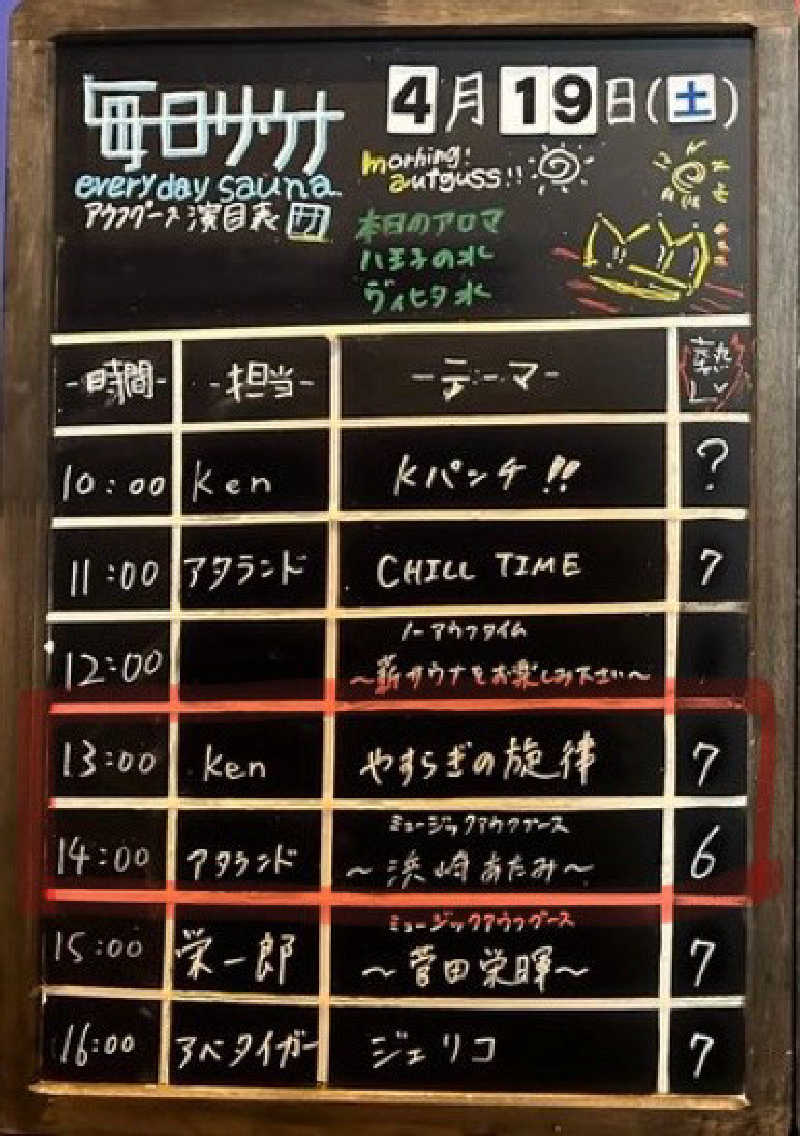 毎日サウナ
everyday sauna
アウフグース演目表
4月19日(土)
morning!
autguss!!
本日のアロマ
八王子の水
ヴィヒタ水
-時間- -担当- -テーマ- 熱し
10:00 Ken Kパンチ!! ?
11:00 アタランド CHILL TIME 7
ノーアウフタイム
12:00 〜薪サウナをお楽しみ下さい〜
13:00 Ken やすらぎの旋律 7
ミュージックアウフグース
14:00 アタランド 〜浜崎あたみ〜 6
ミュージックアウフグース
15:00 栄一郎 〜菅田栄暉〜 7
16:00 アベタイガー ジェリコ 7